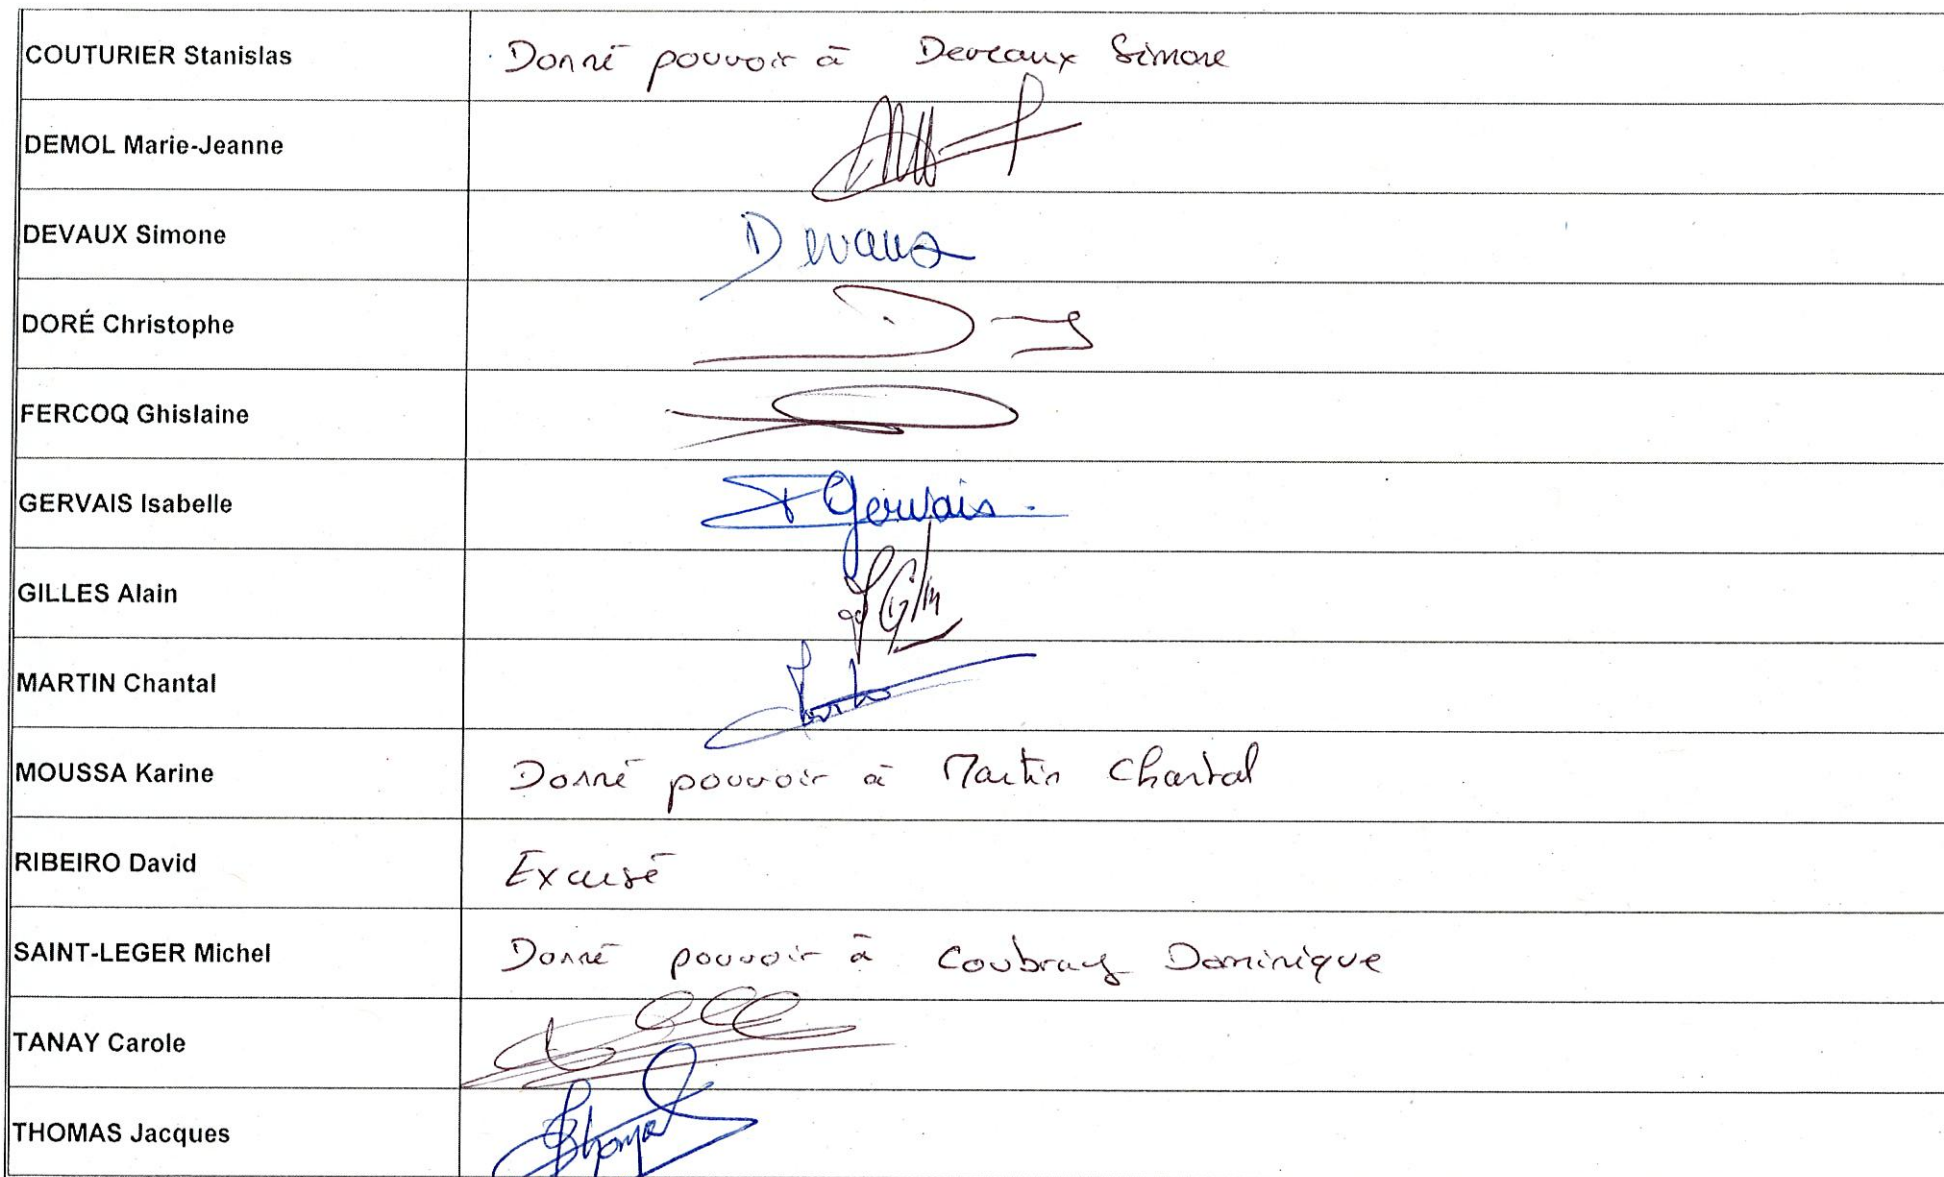 COUTURIER Stanislas Donné pouvoir à Deveaux Simone
DEMOL Marie-Jeanne
DEVAUX Simone Devaux
DORÉ Christophe
FERCOQ Ghislaine
GERVAIS Isabelle Gervais
GILLES Alain
MARTIN Chantal
MOUSSA Karine Donné pouvoir à Martin Chantal
RIBEIRO David Excusé
SAINT-LEGER Michel Donné pouvoir à Coubray Dominique
TANAY Carole
THOMAS Jacques